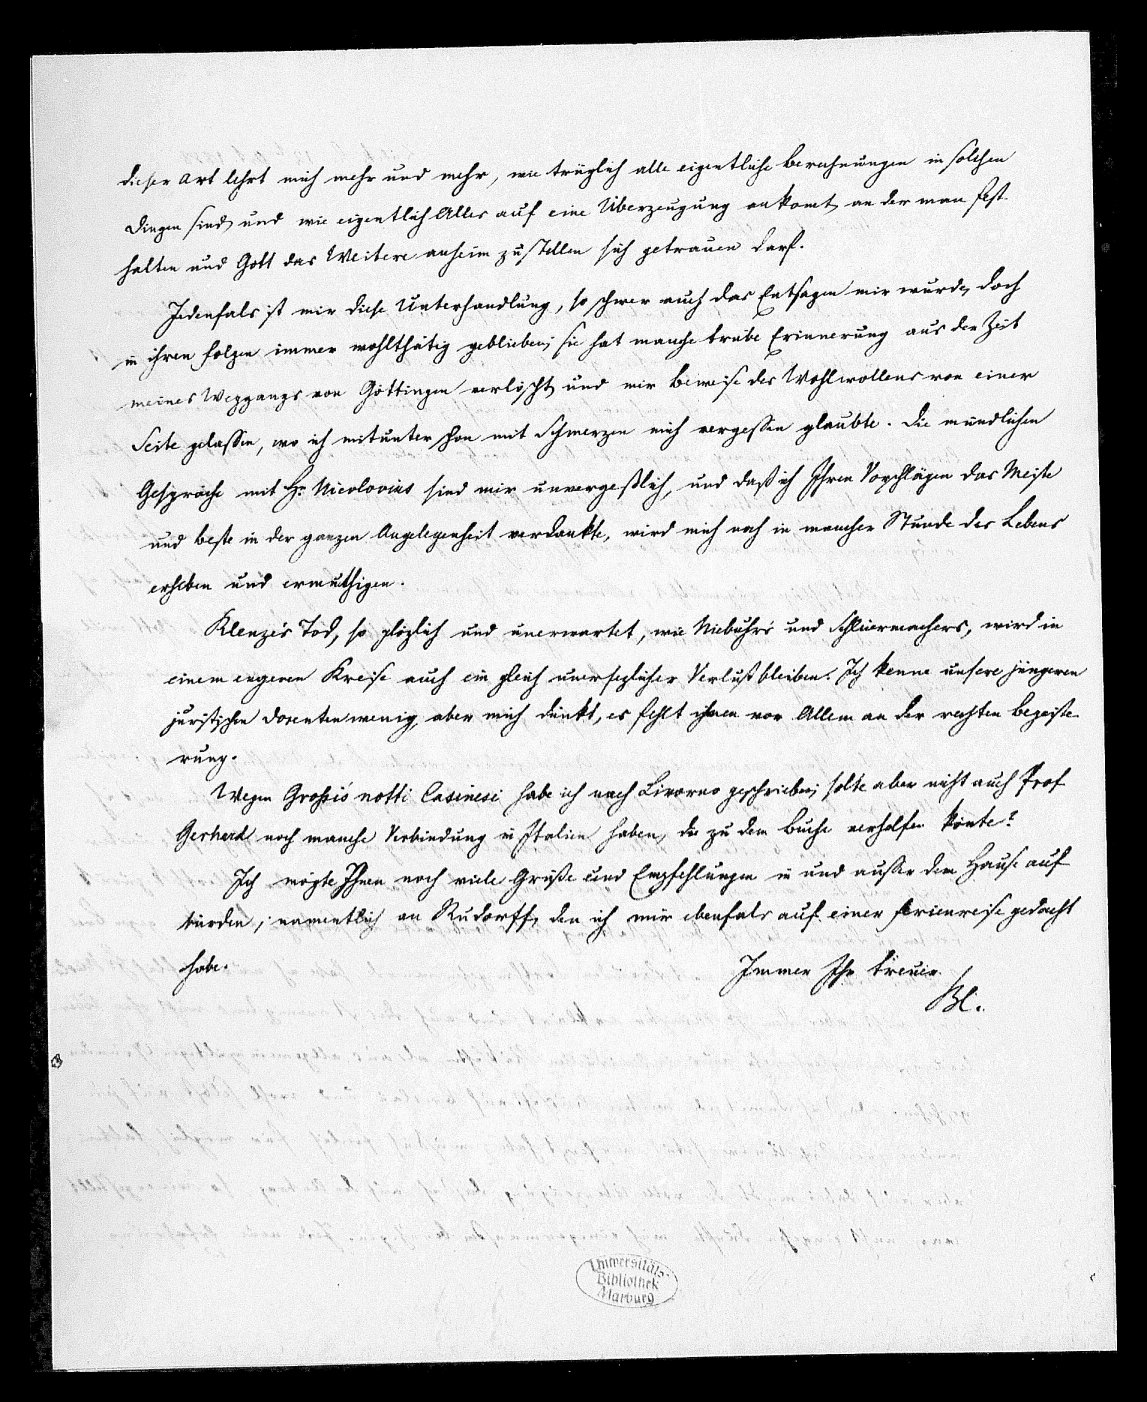 dieser Art lehrt mich mehr und mehr, wie trüglich alle eigentliche Berechnungen in solchen
Dingen sind, und wie eigentlich Alles auf eine Überzeugung ankomt, an der man fest
halten und Gott das Weitere anheim zu stellen sich getrauen darf.
Jedenfals ist mir diese Unterhandlung, so schwer auch das Entsagen mir wurde, doch
in ihren Folgen immer wohlthätig geblieben; sie hat manche trübe Erinnerung aus der Zeit
meines Weggangs von Göttingen verlöscht, und mir Beweise des Wohlwollens von einer
Seite gelassen, wo ich mitunter schon mit Schmerzen mich vergessen glaubte. Die mündlichen
Gespräche mit Hr. Nicolovius sind mir unvergeßlich, und daß ich Ihren Vorschlägen das Meiste
und beste in der ganzen Angelegenheit verdankte, wird mich noch in mancher Stunde des Lebens
erheben und ermuthigen.
Klenze's Tod, so plözlich und unerwartet, wie Niebuhr's und Schleiermachers, wird in
einem engeren Kreise auch ein gleich unersezlicher Verlust bleiben. Ich kenne unsere jüngeren
juristischen Docenten wenig, aber mich dünkt, es fehlt ihnen vor Allem an der rechten Begeiste-
rung.
Wegen Grossi's notti Casinesi habe ich nach Livorno geschrieben; solte aber nicht auch Prof
Gerhard noch manche Verbindung in Italien haben, die zu dem Buche verhelfen könte?
Ich mögte Ihnen noch viele Grüße und Empfehlungen in und außer dem Hause auf
bürden, namentlich an Rudorff, den ich mir ebenfals auf einer Ferienreise gedacht
habe.
Immer Ihr treuer
Bl.
Universitäts
Bibliothek
Marburg